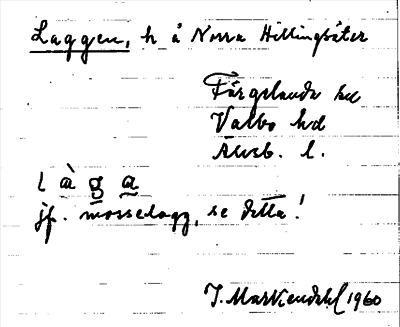 Laggen, h å Norra Hillingsäter
Färgelanda hd
Valbo hd
Älvsb. l.
l à g a
jf. mosselagg, se detta!
J. Markiendahl 1960